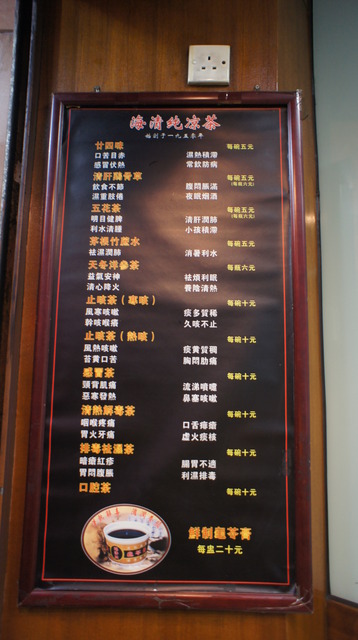 海清純凉茶
始創于一九五零年
廿四味 每碗五元
口苦目赤 濕熱積滯
感冒伏熱 常飲防病
清肝鷄骨草 每碗五元
(每瓶六元)
飲食不節 腹悶脹滿
濕重肢倦 夜眠烟酒
五花茶 每碗五元
(每瓶六元)
明目健脾 清肝潤肺
利水清腫 小孩積滯
茅根竹蔗水 每碗五元
祛濕潤肺 消暑利水
天冬洋參茶 每瓶六元
益氣安神 祛煩利眠
清心降火 養陰清熱
止咳茶(寒咳) 每碗十元
風寒咳嗽 痰多質稀
幹咳喉癢 久咳不止
止咳茶(熱咳) 每碗十元
風熱咳嗽 痰黃質稠
苔黃口苦 胸悶肋痛
感冒茶 每碗十元
頭背肌痛 流涕噴嚏
惡寒發熱 鼻塞咳嗽
清熱解毒茶 每碗十元
咽喉疼痛 口舌痱瘡
胃火牙痛 虛火痰核
排毒祛濕茶 每碗十元
暗瘡紅疹 腸胃不適
胃悶腹脹 利濕排毒
口腔茶 每碗十元
鮮制龜苓膏
每盅二十元